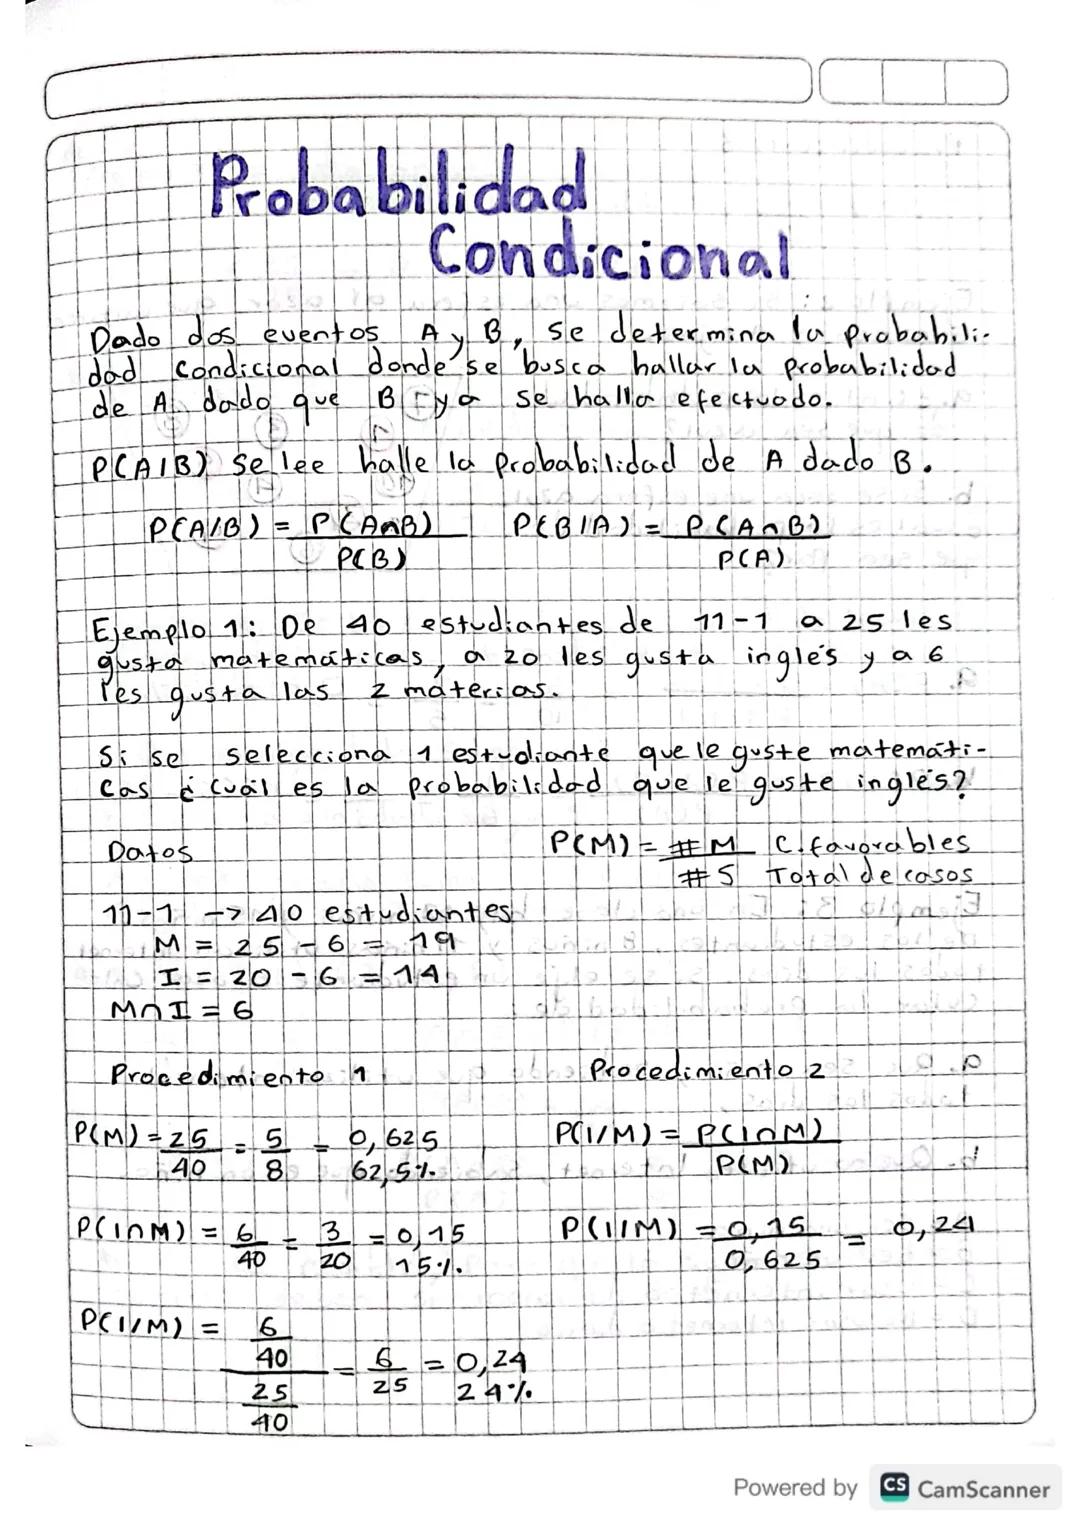 Probabilidad
Condicional
Dado dos eventos A y B, se determina la probabili-
dad condicional donde se busca hallar la probabilidad
de A dado que B ya se halla efectuado.
P(A|B) se lee halle la probabilidad de A dado B.
P(A/B) = P(A∩B) / P(B)   P(B/A) = P(A∩B) / P(A)
Ejemplo 1: De 40 estudiantes de 11-1 a 25 les
gusta matemáticas, a 20 les gusta inglés y a 6
les gusta las 2 materias.
Si se selecciona 1 estudiante que le guste matemáti-
cas ¿cuál es la probabilidad que le guste inglés?
Datos   P(M) = #M / #S   C. favorables / Total de casos
11-1 -> 40 estudiantes
M = 25 - 6 = 19
I = 20 - 6 = 14
M∩I = 6
Procedimiento 1   Procedimiento 2
P(M) = 25/40 = 5/8 = 0,625   P(I/M) = P(I∩M) / P(M)
62,5%
P(I∩M) = 6/40 = 3/20 = 0,15   P(I/M) = 0,15 / 0,625 = 0,24
15%
P(I/M) = 6/40 / 25/40 = 6/25 = 0,24
24%
Powered by CS CamScanner